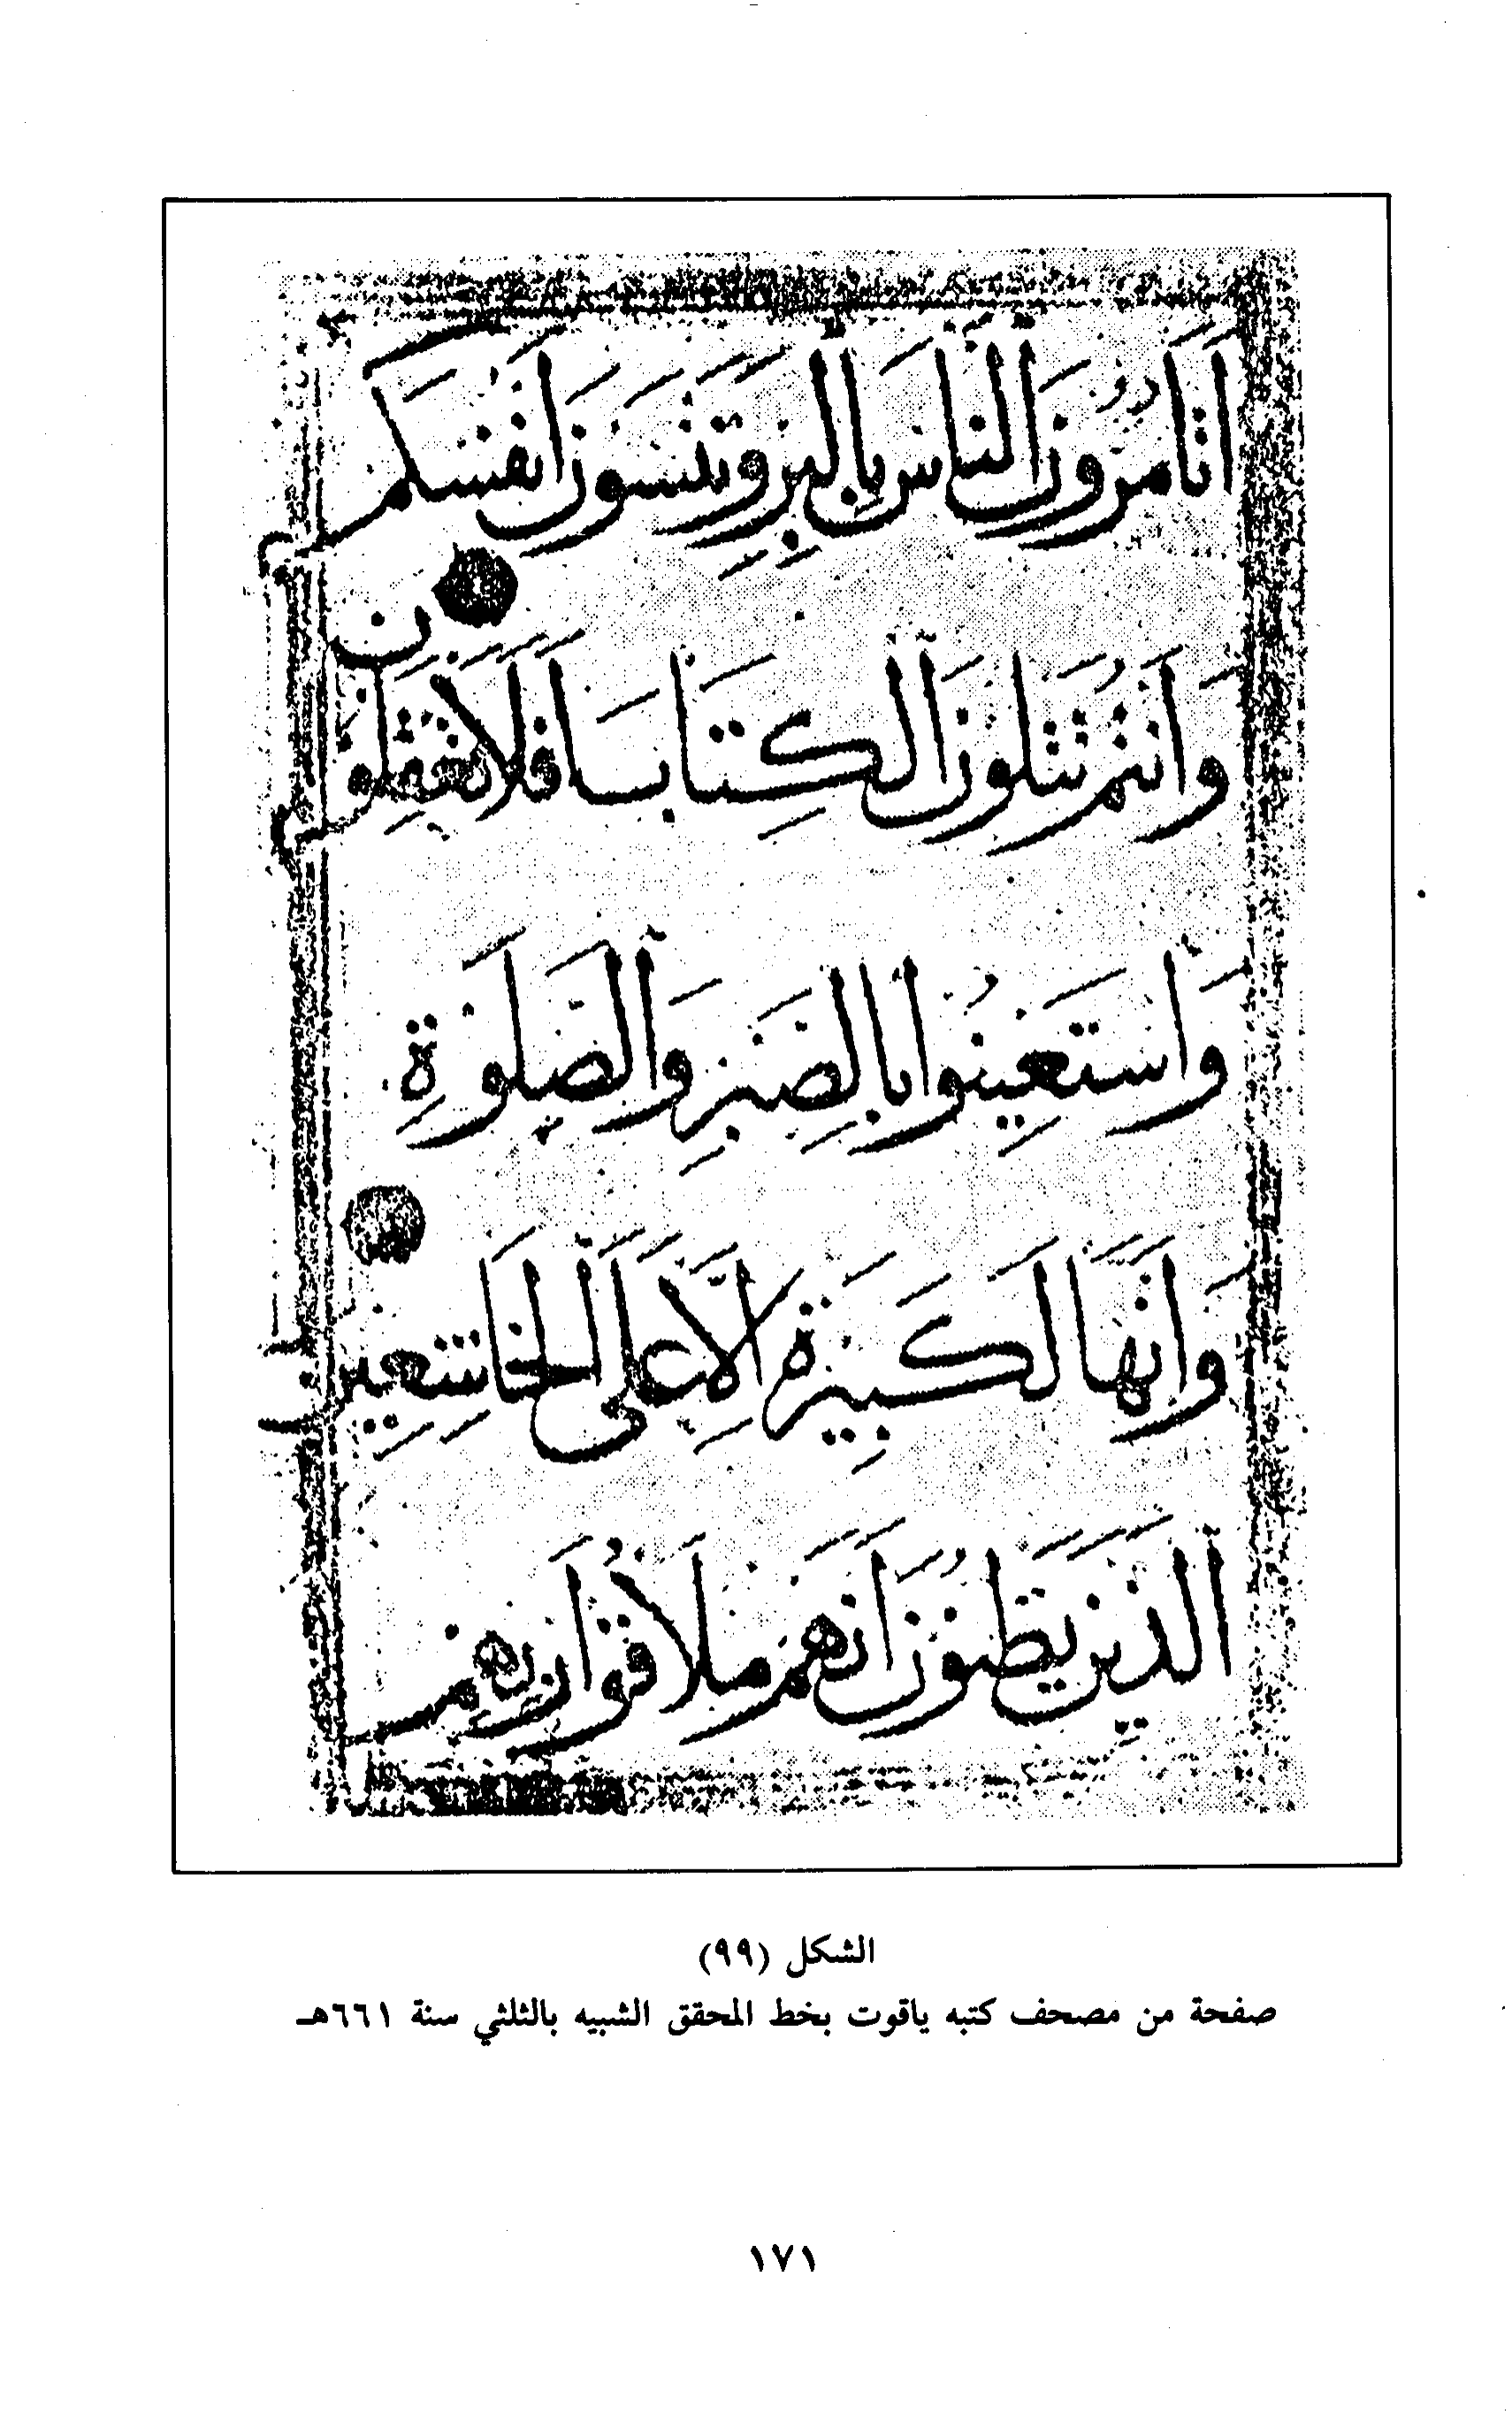 اَتَأْمُرُونَ ٱلنَّاسَ بِٱلْبِرِّ وَتَنْسَوْنَ اَنْفُسَكُمْ
وَاَنْتُمْ تَتْلُونَ ٱلْكِتَابَ اَفَلَا تَعْقِلُونَ
وَٱسْتَعِينُوا بِالصَّبْرِ وَٱلصَّلٰوةِ
وَاِنَّهَا لَكَبِيرَةٌ اِلَّا عَلَى ٱلْخَاشِعِينَ
ٱلَّذِينَ يَظُنُّونَ اَنَّهُمْ مُلَاقُوا رَبِّهِمْ
الشكل (٩٩)
صفحة من مصحف كتبه ياقوت بخط المحقق الشبيه بالثلثي سنة ٦٦١هـ
١٧١